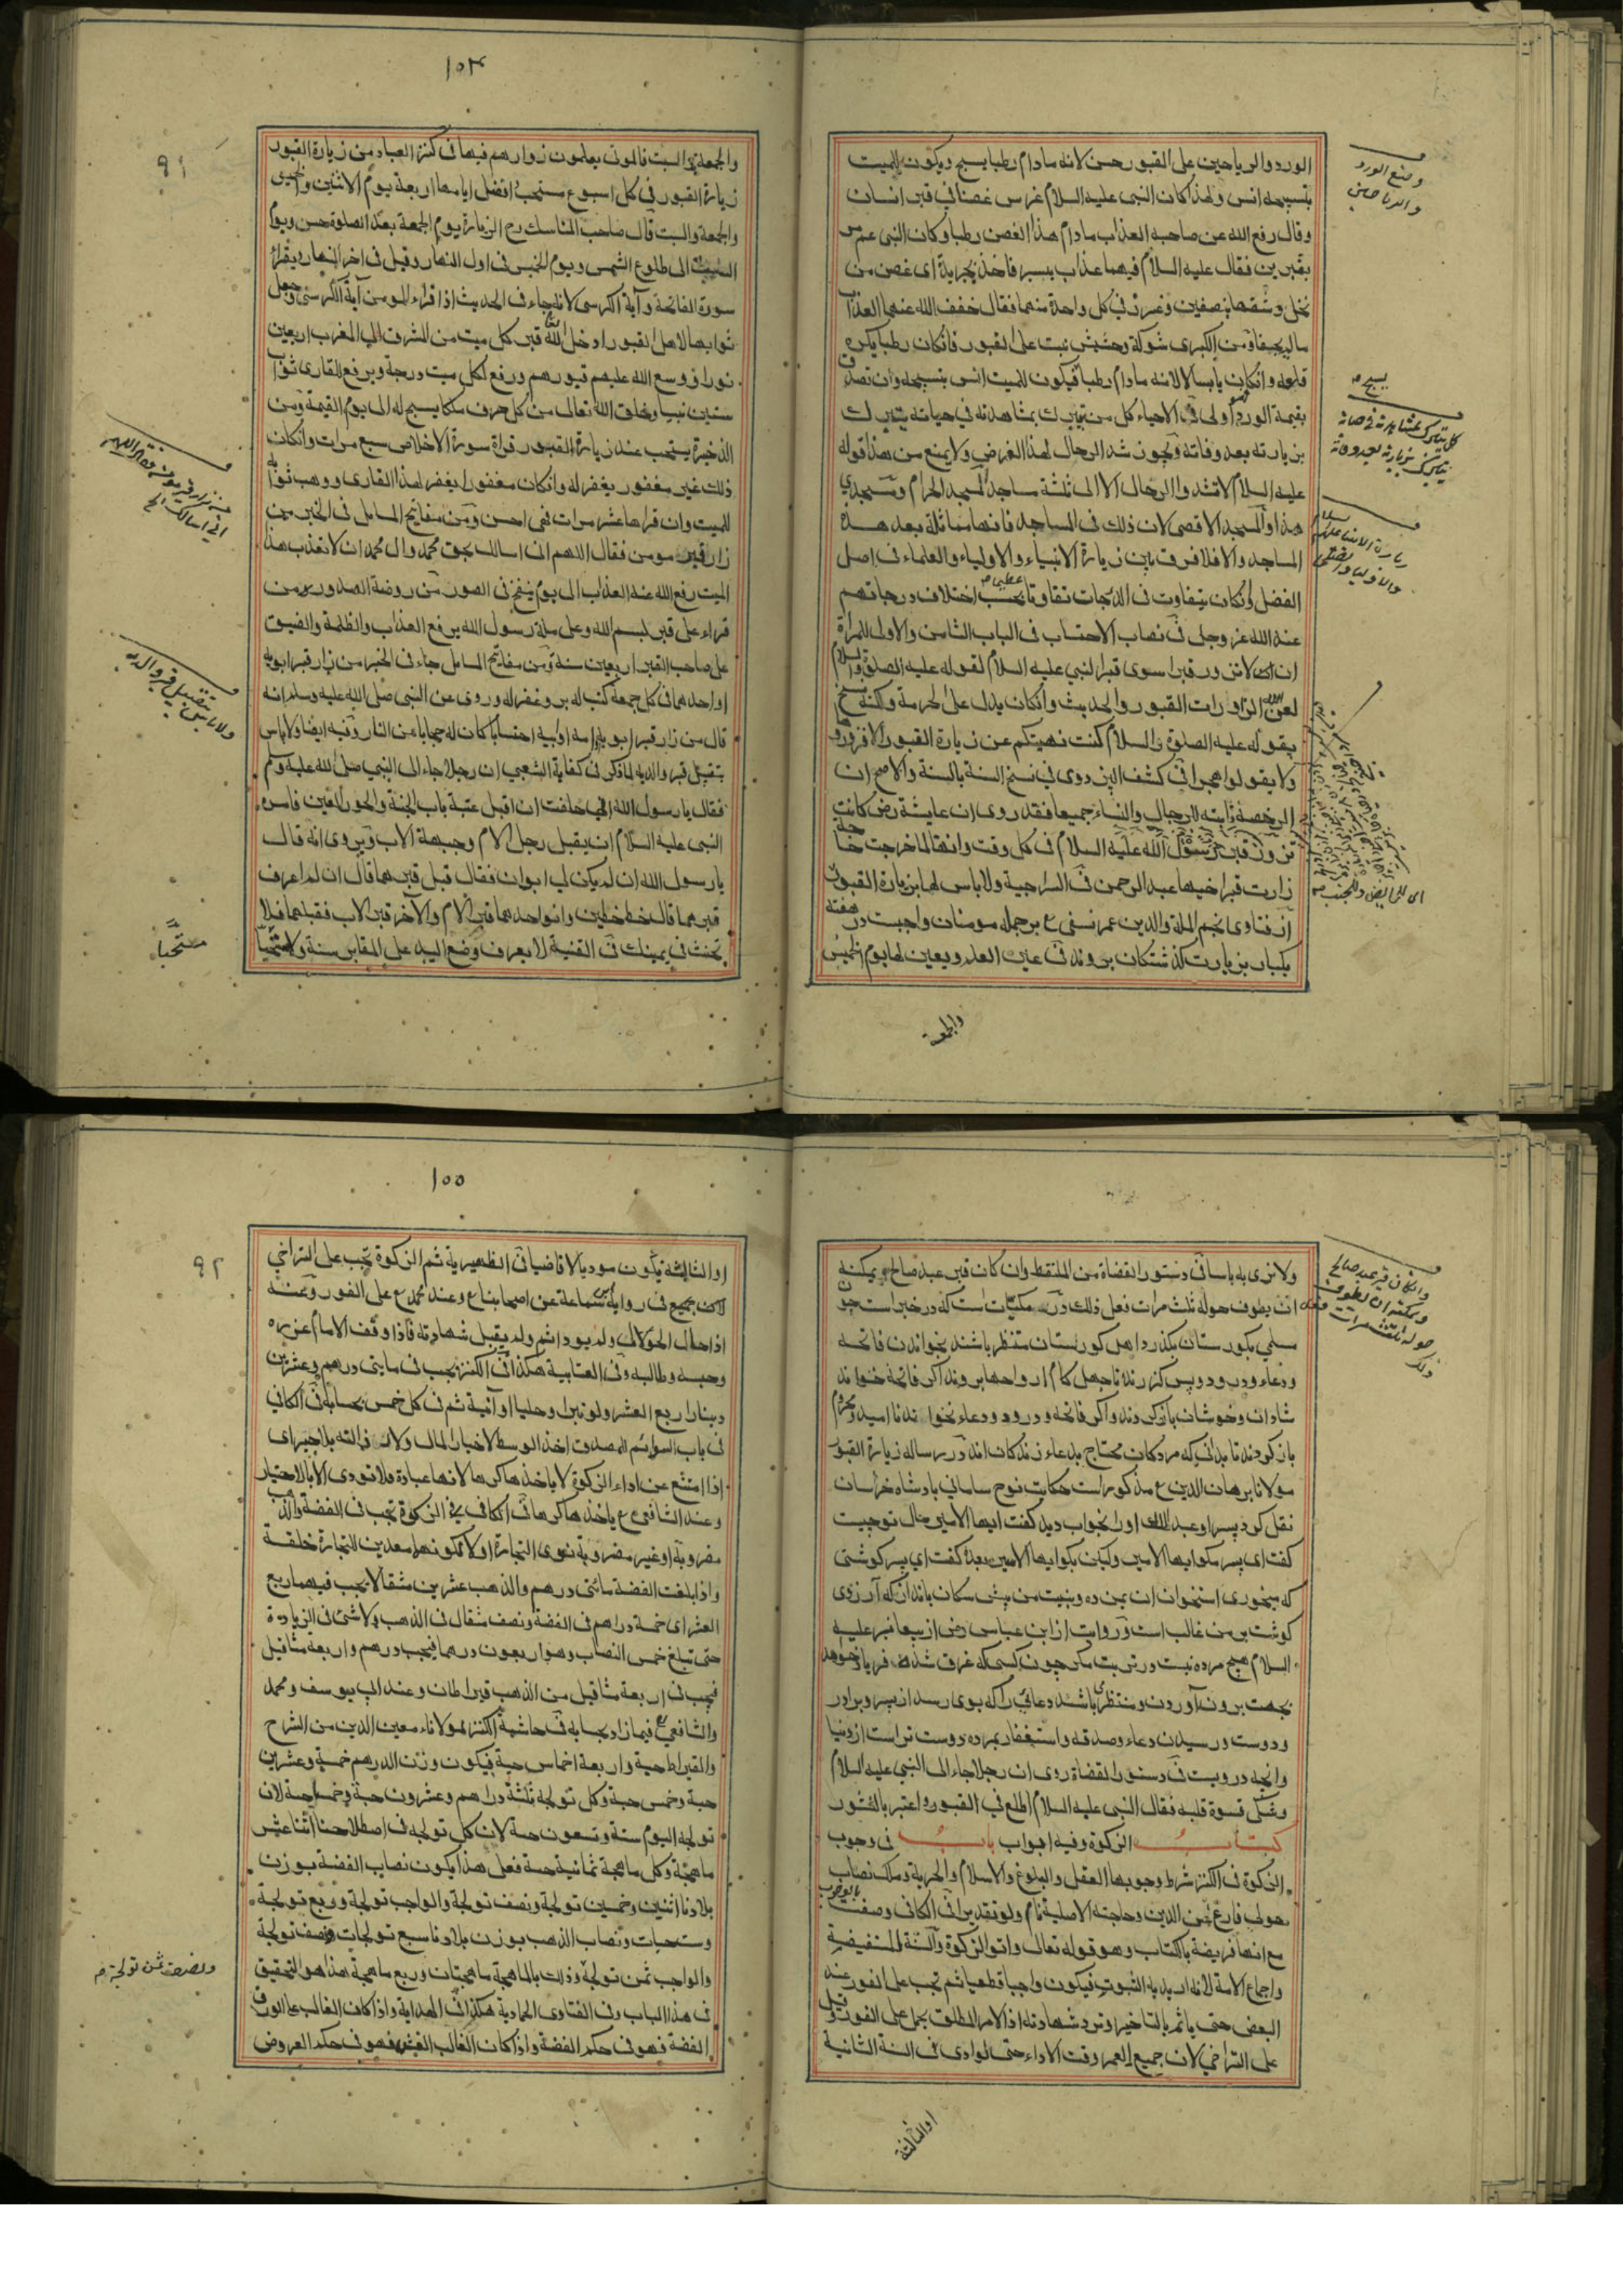 الورد والرياحين على القبور حسن لانه مادام رطبا يسبح ويكون للميت
بتسبيحه انس ولهذا كان النبى عليه السلام غرس غصنا فى قبر انسان
وقال رفع الله عن صاحبه العذاب مادام هذا الغصن رطبا وكان النبى عم مر
بقبرين فقال عليه السلام فيهما عذاب يسير فاخذ بجريدة اى غصن من
نخل وشقها بنصفين وغرز فى كل واحدة منهما فقال خفف الله عنهما العذاب
مالم يجفا ومن الكبرى شوكة وحشيش نبت على القبور فانكان رطبا يكره
قلعه وانكان يابسا لا لانه مادام رطبا فيكون للميت انس بتسبيحه وان تصدق
بقيمة الورد اولى فى الاحياء كل من يتبرك بمشاهدته فى حياته يتبرك
بزيارته بعد وفاته ويجوز شد الرحال لهذا الغرض ولا يمنع من هذا قوله
عليه السلام لا تشد والرحال الا الى ثلثة مساجد المسجد الحرام ومسجدي
هذا والمسجد الاقصى لان ذلك فى المساجد فانها مماثلة بعد هذه
المساجد والا فلا فرق بين زيارة الانبياء والاولياء والعلماء فى اصل
الفضل وانكان يتفاوت فى الدرجات تفاوتا عظيما بحسب اختلاف درجاتهم
عند الله عز وجل فى نصاب الاحتساب فى الباب الثامن والاولى للمراة
ان لا تزور قبرا سوى قبر النبي عليه السلام لقوله عليه الصلوة والسلام
لعن الله الزاورات القبور والحديث وانكان يدل على الحرمة ولكنه نسخ
بقوله عليه الصلوة والسلام كنت نهيتكم عن زيارة القبور الا فزوروها
ولا يقولوا هجرا فى كشف البزدوى فى نسخ السنة بالسنة والاصح ان
الرخصة ثابته للرجال والنساء جميعا فقد روى ان عايشة رض كانت
تزور قبر رسول الله عليه السلام فى كل وقت وانها لما خرجت حاجة
زارت قبر اخيها عبد الرحمن فى السراجية ولا باس لها بزيارة القبور
از فتاوى نجم الملة والدين عمر نسفى ع بر جمله مومنان واجبست در هفته
يكبار بزيارت كذشتكان بروند فى عين العلم ويعين لها يوم الخميس
والجمعة
وضع الورد
والرياحين
يسبح
كل يتبرك بمشاهدته فى حياته
يتبرك بزيارته بعد وفاته
زيارة الانبياء عليهم السلام
والاولياء والعلماء
اى للحايض وللجنب
١٥٤
٩١
والجمعة والسبت فالموتى يعلمون زوارهم فيها فى كنز العباد من زيارة القبور
زيارة القبور فى كل اسبوع مستحب افضل ايامها اربعة يوم الاثنين والخميس
والجمعة والسبت قال صاحب المناسك رح الزيارة يوم الجمعة بعد الصلوة حسن ويوم
السبت الى طلوع الشمس ويوم الخميس فى اول النهار وقيل فى اخر النهار ويقرا
سورة الفاتحة وآية الكرسى لانه جاء فى الحديث اذا قراء المومن آية الكرسى وجعل
ثوابها لاهل القبور ادخل الله تعا قبر كل ميت من المشرق الى المغرب اربعين
نورا ووسع الله عليهم قبورهم ورفع لكل ميت درجة ويرفع للقارى ثواب
ستين نبيا وخلق الله تعالى من كل حرف ملكا يسبح له الى يوم القيمة ومن
الذخيرة يستحب عند زيارة القبور قراة سورة الاخلاص سبع مرات وانكان
ذلك غير مغفور يغفر له وانكان مغفورا يغفر لهذا القارى ووهب ثوابه
للميت وان قراها عشر مرات فهى احسن ومن مفاتيح المسايل فى الخبر من
زار قبر مومن فقال اللهم انى اسالك بحق محمد وال محمد ان لا تعذب هذا
الميت رفع الله عنه العذاب الى يوم ينفخ فى الصور من روضة الصدور من
قراء على قبر بسم الله وعلى ملة رسول الله يرفع العذاب والظلمة والضيق
على صاحب القبر اربعين سنة ومن مفاتيح المسايل جاء فى الخبر من زار قبر ابويه
او احدهما فى كل جمعة كتب له بر وغفر له وروى عن النبى صلى الله عليه وسلم انه
قال من زار قبر ابويه او امه او ابيه احتسابا كان له حجابا من النار وفيه ايضا ولا باس
بتقبيل قبر والديه لما ذكر فى كفاية الشعبي ان رجلا جاء الى النبي صلى الله عليه وسلم
فقال يا رسول الله انى حلفت ان اقبل عتبة باب الجنة والحور العين فامر
النبى عليه السلام ان يقبل رجل الام وجبهة الاب ويروى انه قال
يا رسول الله ان لم يكن لى ابوان فقال قبل قبرهما قال ان لم اعرف
قبرهما قال خط خطين وانو احدهما قبر الام والآخر قبر الاب فقبلهما فلا
تحنث فى يمينك فى القنية لا يعرف وضع اليد على المقابر سنة ولا مستحبا
من زار قبر مومن فقال اللهم
انى اسالك الخ
ولا باس بتقبيل قبر والديه
مستحباً
ولا نرى به باسا فى دستور القضاة من الملتقط وان كان قبر عبد صالح ويمكنه
ان يطوف حوله ثلث مرات فعل ذلك در مكتبات است كه در خبر است چون
مسلمي بكورستان بكذرد اهل كورستان منتظر باشند بخواندن فاتحه
ودعاء ودرود وپس كزرند تا چهل كام ارواحها بروند اكر فاتحه خوانند
شادان وخوشان باز كردند واكر فاتحه ودرود ودعاء نخوانند نا اميد ومحروم
باز كردند تا بدانى كه مردكان محتاج بدعاء زندكان اند در رساله زيارة القبور
مولانا برهان الدين ع مذكور است حكايت نوح ساماني بادشاه خراسان
نقل كرد پسر او عبد الملك او را بخواب ديد كفت ايها الامير حال تو چيست
كفت اى پسر مكو ايها الامير وليكن بكو ايها الاسير بعد كفت اي پسر كوشتى
كه ميخورى استخوان ان بمن ده وبنيت من پيش سكان بانداز كه آرزوى
كوشت بر من غالب است وروايت از ابن عباس رض از پيغامبر عليه
السلام هيچ مرده نيست در تربت مكر چون كسى كه غرق شده فرياد خواهد
بجهت برون آوردن ومنتظر باشند دعائي را كه بوى رسد از پسر وبرادر
ودوست ورسيدن دعاء وصدقه واستغفار بمرده دوست تر است از دنيا
وانچه دروست فى دستور القضاة روى ان رجلا جاء الى النبي عليه السلام
وشكى قسوة قلبه فقال النبى عليه السلام اطلع في القبور واعتبر بالنشور
كتاب الزكوة وفيه ابواب باب فى وجوب
الزكوة فى الكنز شرط وجوبها العقل والبلوغ والاسلام والحرية وملك نصاب
حولى فارغ عن الدين وحاجته الاصلية نام ولو تقديرا فى الكافى وصفت بالوجوب
مع انها فريضة بالكتاب وهو قوله تعالى واتوا الزكوة والسنة المستفيضة
واجماع الامة لانه اريد به الثبوت فيكون واجبا قطعيا ثم تجب على الفور عند
البعض حتى ياثم بالتاخير وترد شهادته اذ الامر المطلق يحمل على الفور وقيل
على التراخي لان جميع العمر وقت الاداء حتى لو ادى فى السنة الثانية
او الثالثة
وانكان قبر عبد صالح
ويمكنه ان يطوف
حوله ثلث مرات فعل
ذلك
١٥٥
٩٢
او الثالثة يكون موديا لا قاضيا فى الظهيرية ثم الزكوة تجب على التراخي
لان جميع فى رواية ابن شماعة عن اصحابنا ع وعند محمد ع على الفور وعنه
اذا حال الحولان ولم يود اثم ولم يقبل شهادته فاذا وقف الامام عزره
وحبسه وطالبه وفى العتابية هكذا فى الكنز يجب فى مايتى درهم وعشرين
دينارا ربع العشر ولو تبرا وحليا او آنية ثم فى كل خمس بحسابه فى الكافي
فى باب السوائم المصدق اخذ الوسط لاخيار المال
اذا امتنع عن اداء الزكوة لا ياخذها كرها لانها عبادة فلا تودى الا بالاختيار
وعند الشافعى ع ياخذها كرها فى الكافى الزكوة تجب فى الفضة والذهب
مضروبة او غير مضروبة نوى التجارة او لا لكونها معدين للتجارة خلقة
واذا بلغت الفضة مائتى درهم والذهب عشرين مثقالا يجب فيهما ربع
العشر اى خمسة دراهم فى الفضة ونصف مثقال فى الذهب ولا شئ فى الزيادة
حتى تبلغ خمس النصاب وهو اربعون درهما فيجب درهم واربعة مثاقيل
فيجب فى اربعة مثاقيل من الذهب قيراطان وعند ابي يوسف ومحمد
والشافعى ع فيما زاد بحسابه فى حاشية الكنز لمولاناء معين الدين من الشرح
والقيراط حبة واربعة اخماس حبة فيكون وزن الدرهم خمسة وعشرين
حبة وخمس حبة وكل تولجه ثلثة دراهم وعشرون حبة وخمسا حبة لان
تولجه اليوم ستة وتسعون حبة لان كل تولجه فى اصطلاحنا اثنا عشر
ماهجة وكل ماهجة ثمانية حبة فعلى هذا يكون نصاب الفضة بوزن
بلادنا اثنين وخمسين تولجة ونصف تولجة والواجب تولجة وربع تولجة
وست حبات ونصاب الذهب بوزن بلادنا سبع تولجات ونصف تولجة
والواجب ثمن تولجة وذلك بالماهجة ماهجتان وربع ماهجة هذا هو التحقيق
فى هذا الباب وفى الفتاوى الحمادية هكذا فى الهداية واذا كان الغالب على الورق
الفضة فهو فى حكم الفضة واذا كان الغالب الغش فهو فى حكم العروض
ونصف ثمن تولجة